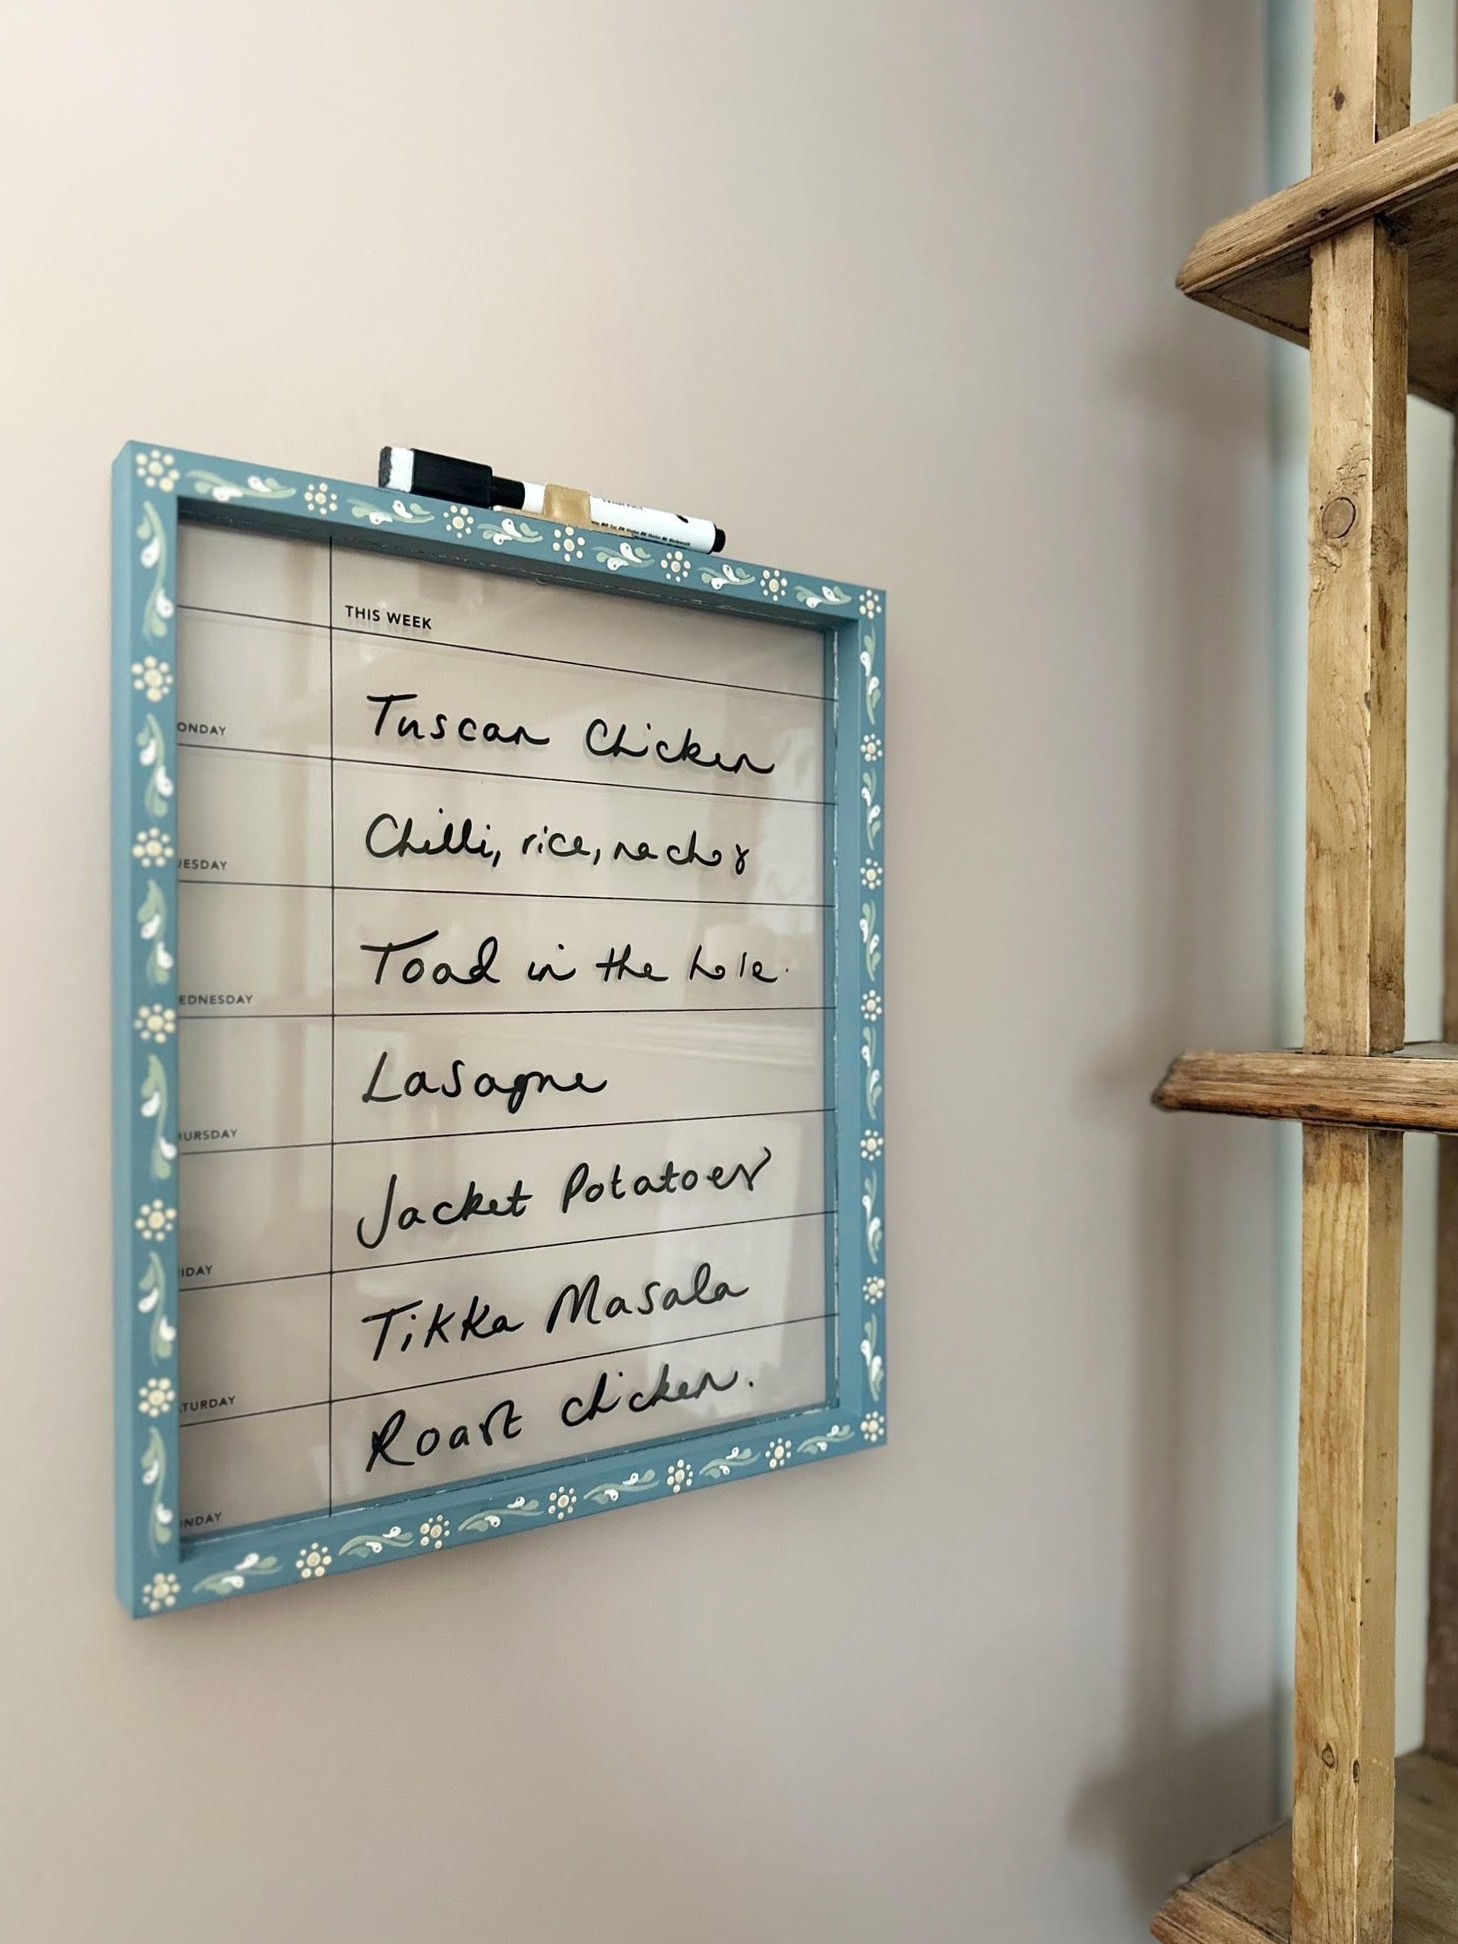 THIS WEEK
ONDAY
Tuscan Chicken
UESDAY
Chilli, rice, nachos
EDNESDAY
Toad in the hole.
HURSDAY
Lasagne
IDAY
Jacket Potatoes
ATURDAY
Tikka Masala
NDAY
Roast chicken.